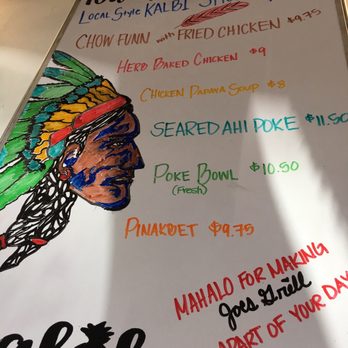 Local Style KALBI
CHOW FUNN with FRIED CHICKEN $9.75
HERB BAKED CHICKEN $9
CHICKEN PAPAYA SOUP $8
SEARED AHI POKE $11.50
POKE BOWL $10.50
(Fresh)
PINAKBET $9.75
MAHALO FOR MAKING
Joes Grill
APART OF YOUR DAY